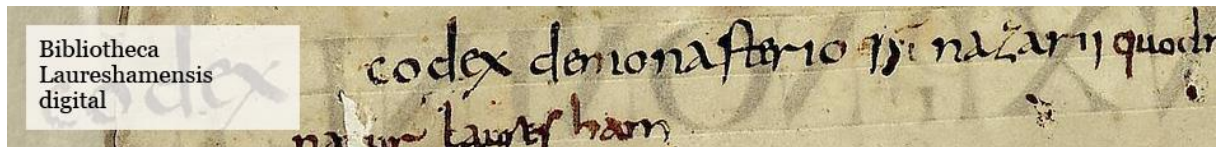 Bibliotheca
Laureshamensis
digital
codex demonasterio sci nazarii quodn
laures ham